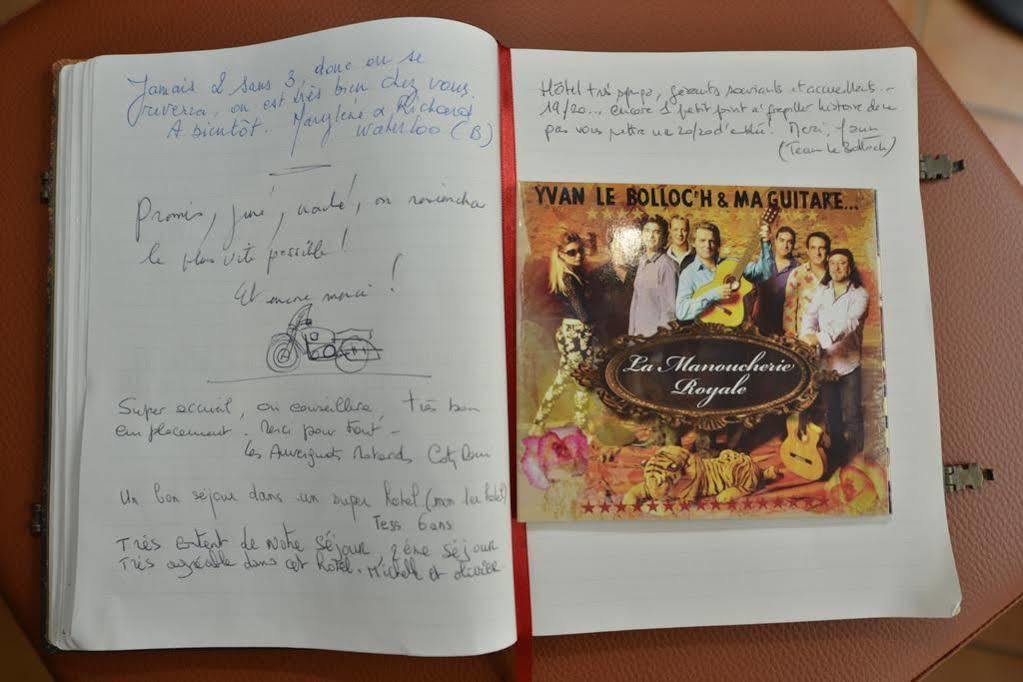 Jamais 2 sans 3, donc on se
reverra, on est très bien chez vous.
A bientôt. Marylène & Richard
Waterloo (B)
Promis, juré, craché, on reviendra
le plus vite possible !
Et encore merci !
Super accueil, on conseillera, très bon
emplacement. Merci pour tout -
Les Auvergnats Motards
Un bon séjour dans un super hotel (mon 1er hotel)
Tess 6 ans
Très content de notre séjour, 2ème séjour
Très agréable dans cet hotel. Michelle et olivier
Hôtel très sympa, gérants souriants et accueillants...
19/20... encore 1 petit point à grapiller histoire de ne
pas vous mettre un 20/20 d'entrée. Merci,
(Team Le Bolloch)
YVAN LE BOLLOC'H & MA GUITARE...
La Manoucherie
Royale